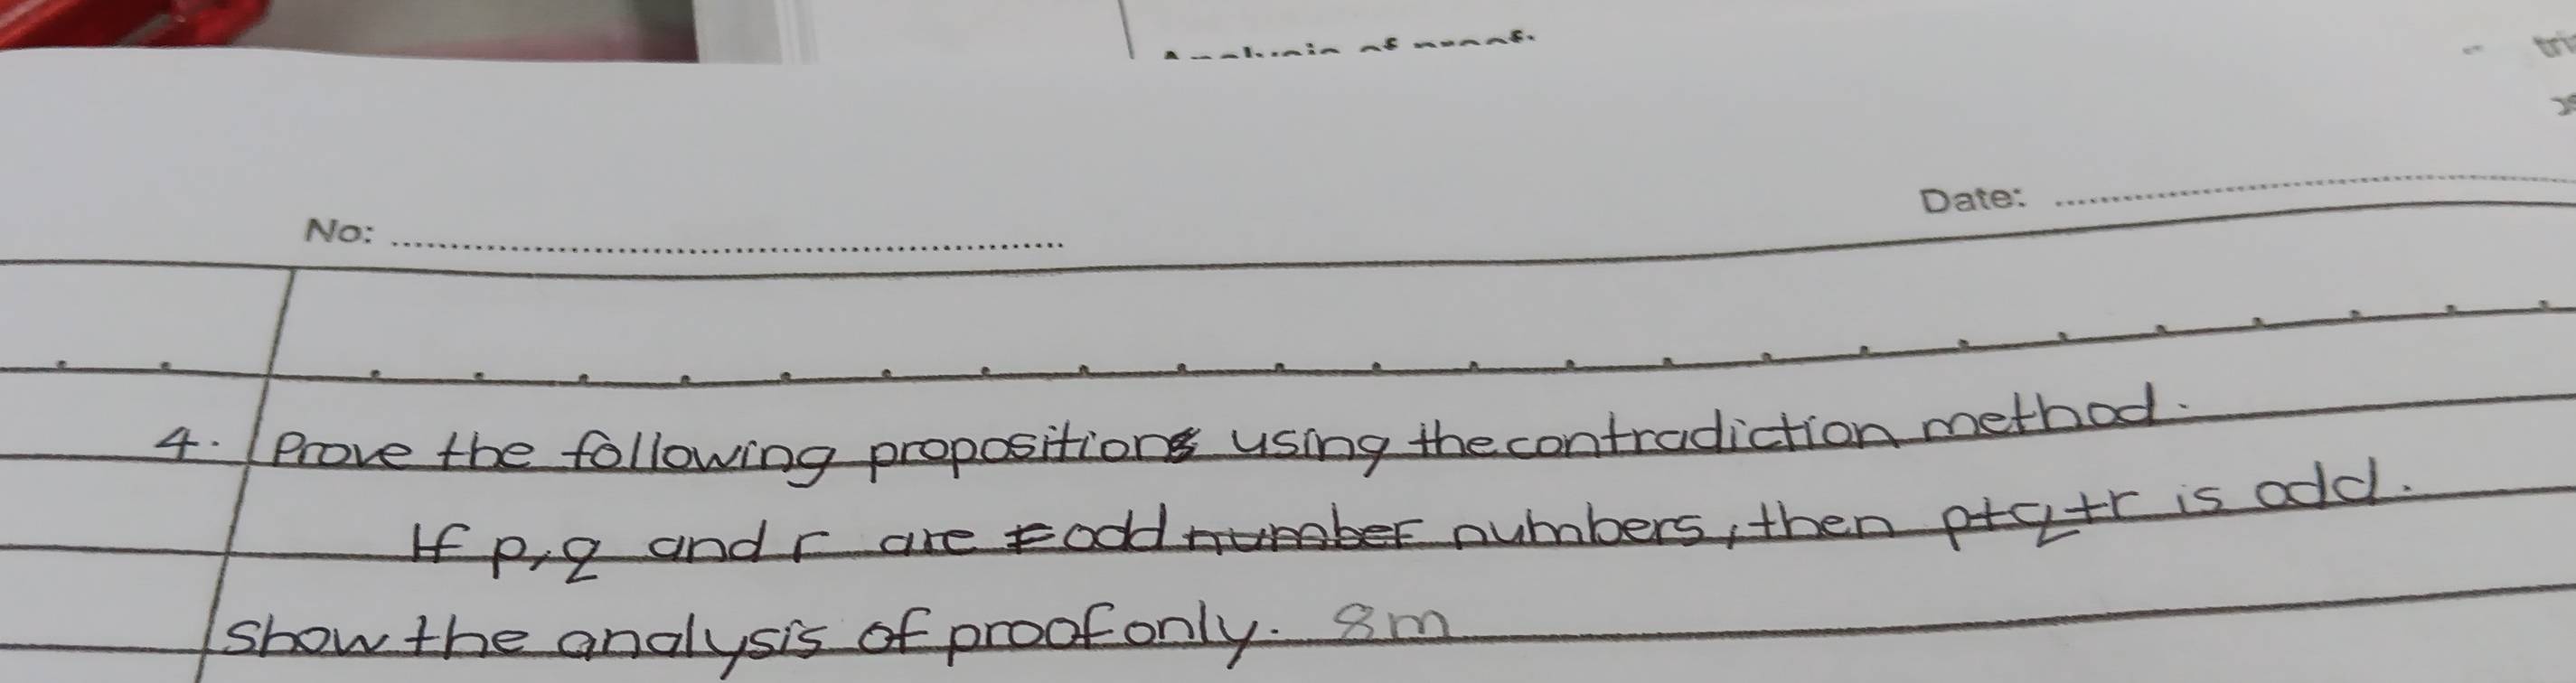 Analysis of proof.
No:
Date:
4. Prove the following propositions using the contradiction method.
If p, q and r are odd number numbers, then p+q+r is odd.
Show the analysis of proof only. 8m